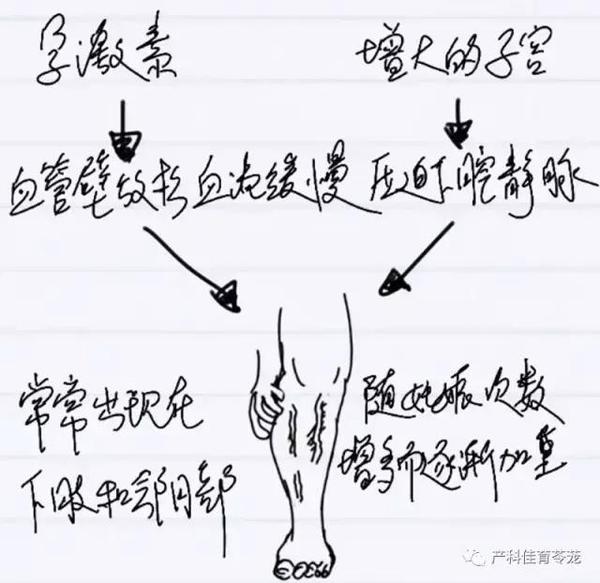 孕激素
增大的子宫
血管壁放松血流缓慢
压迫下腔静脉
常常出现在
下肢和外阴部
随妊娠次数
增多而逐渐加重
产科佳育苓茏